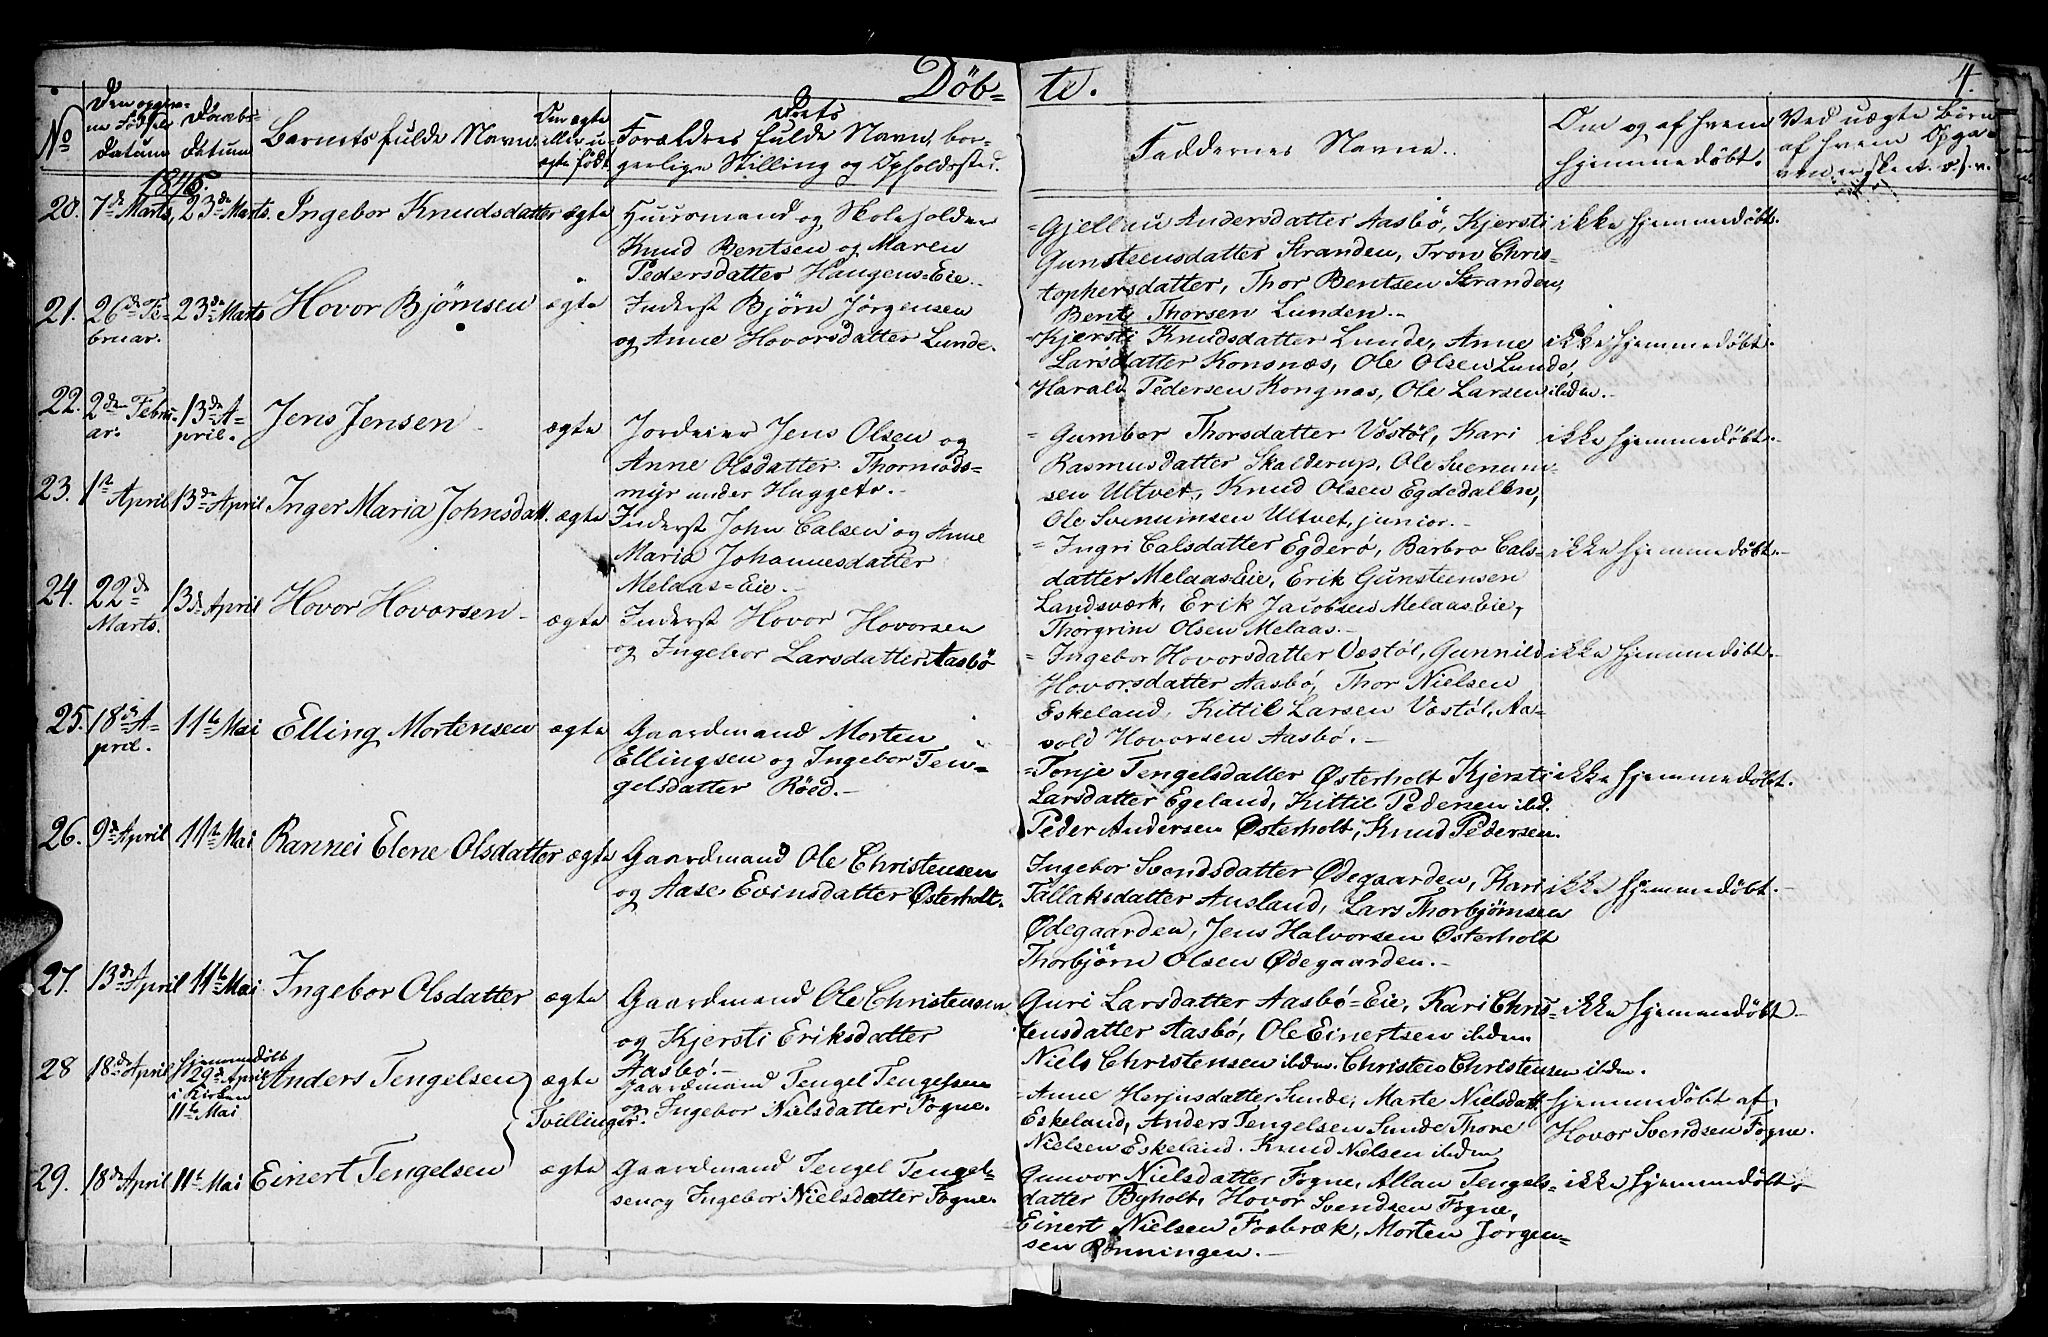 Döb- te. 4.
No
Den opgivne Fødsels Datum
Daabs Datum
Barnets fulde Navn
Om ægte eller uægte født
Forældres fulde Navn, borgerlige Stilling og Opholdssted.
Faddernes Navne.
Om og af hvem hjemmedøbt.
Ved uægte Børn af hvem Opgaven er skeet o.s.v.
1845.
20. 7de Marts, 23de Marts. Ingebor Knudsdatter ægte
Huusmand og Skoleholder
Knud Bentsen og Maren
Pedersdatter Haugens=Eie.
Gjellau Andersdatter Aasbø, Kjersti
Gunsteensdatter Stranden, Tron Chris-
tophersdatter, Thor Bentsen Stranden,
Bent Thorsen Lunden.
ikke hjemmedøbt.
21. 26de Fe-
bruar. 23de Marts Hovor Bjørnsen ægte
Inderst Bjørn Jørgensen
og Anne Hovorsdatter Lunde.
Kjersti Knudsdatter Lunde, Anne
Larsdatter Konsnæs, Ole Olsen Lunde,
Harald Pedersen Kongnæs, Ole Larsen ibdm.
ikke hjemmedøbt.
22. 2den Febru-
ar. 13de A-
pril. Jens Jensen ægte
Jordeier Jens Olsen og
Anne Olsdatter Thormods=
myr under Huggeto.
Gumbor Thorsdatter Vastøl, Kari
Rasmusdatter Skalderup, Ole Svenum-
sen Ultvet, Knud Olsen Egdedalen,
Ole Svenumsen Ultvet, junior.
ikke hjemmedøbt.
23. 1ste April 13de April Inger Maria Johnsdatt. ægte
Inderst John Calsen og Anne
Maria Johannesdatter
Melaas=Eie.
Ingri Calsdatter Egderø, Barbro Cals-
datter Melaas-Eie, Erik Gunsteensen
Landsværk, Erik Jacobsen Melaas Eie,
Thorgrim Olsen Melaas.
ikke hjemmedøbt.
24. 22de
Marts. 13de April Hovor Hovorsen ægte
Inderst Hovor Hovorsen
og Ingebor Larsdatter Aasbø
Ingebor Hovorsdatter Vastøl, Gunnild
Hovorsdatter Aasbø, Thor Nielsen
Eskeland, Kittil Larsen Vastøl, Aa-
vold Hovorsen Aasbø.
ikke hjemmedøbt.
25. 18de A-
pril. 11te Mai Elling Mortensen ægte
Gaardmand Morten
Ellingsen og Ingebor Ten-
gelsdatter Röed.
Tonje Tengelsdatter Østerholt Kjersti
Larsdatter Egeland, Kittil Pedersen ibd.
Peder Andersen Østerholt, Knud Pedersen.
ikke hjemmedøbt.
26. 9de April 11te Mai Rannei Elene Olsdatter ægte
Gaardmand Ole Christensen
og Aase Evinsdatter Østerholt.
Ingebor Svendsdatter Ødegaarden, Kari
Tallaksdatter Ausland, Lars Thorbjørnsen
Ødegaarden, Jens Halvorsen Østerholt
Thorbjørn Olsen Ødegaarden.
ikke hjemmedøbt.
27. 13de April 11te Mai Ingebor Olsdatter ægte
Gaardmand Ole Christensen
og Kjersti Eriksdatter
Aasbø.
Guri Larsdatter Aasbø=Eie, Kari Chris-
tensdatter Aasbø, Ole Einertsen ibdm.
Niels Christensen ibdm. Christen Christensen ibdm.
ikke hjemmedøbt
28 18de April Hjemmedøbt
29de April
i Kirken
11te Mai Anders Tengelsen ægte
Tvillinger.
Gaardmand Tengel Tengelsen
og Ingebor Nielsdatter Fogne.
Anne Herjusdatter Sunde, Marte Nielsdatt.
Eskeland, Anders Tengelsen Sunde Thore
Nielsen Eskeland. Knud Nielsen ibdm
hjemmedøbt af
Hovor Svendsen Fogne.
29. 18de April 11te Mai Einert Tengelsen ægte
Gaardmand Tengel Tengel-
sen og Ingebor Nielsdatter Fogne.
Gunvor Nielsdatter Fogne, Allau Tengels-
datter Byholt, Hovor Svendsen Fogne,
Einert Nielsen Fosbræk, Morten Jorgen-
sen Rønningen.
ikke hjemmedøbt.